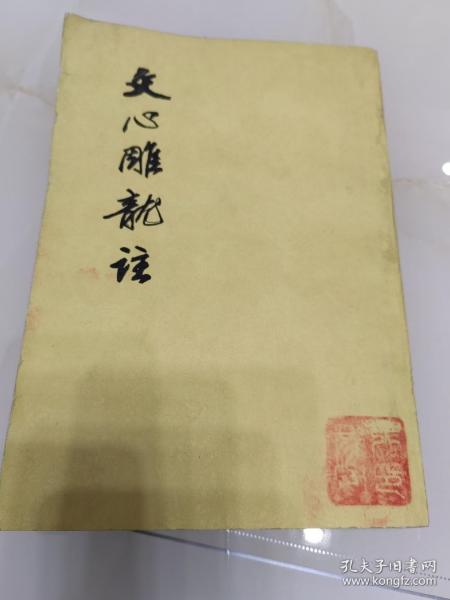 文心雕龍註
孔夫子旧书网
www.kongfz.com